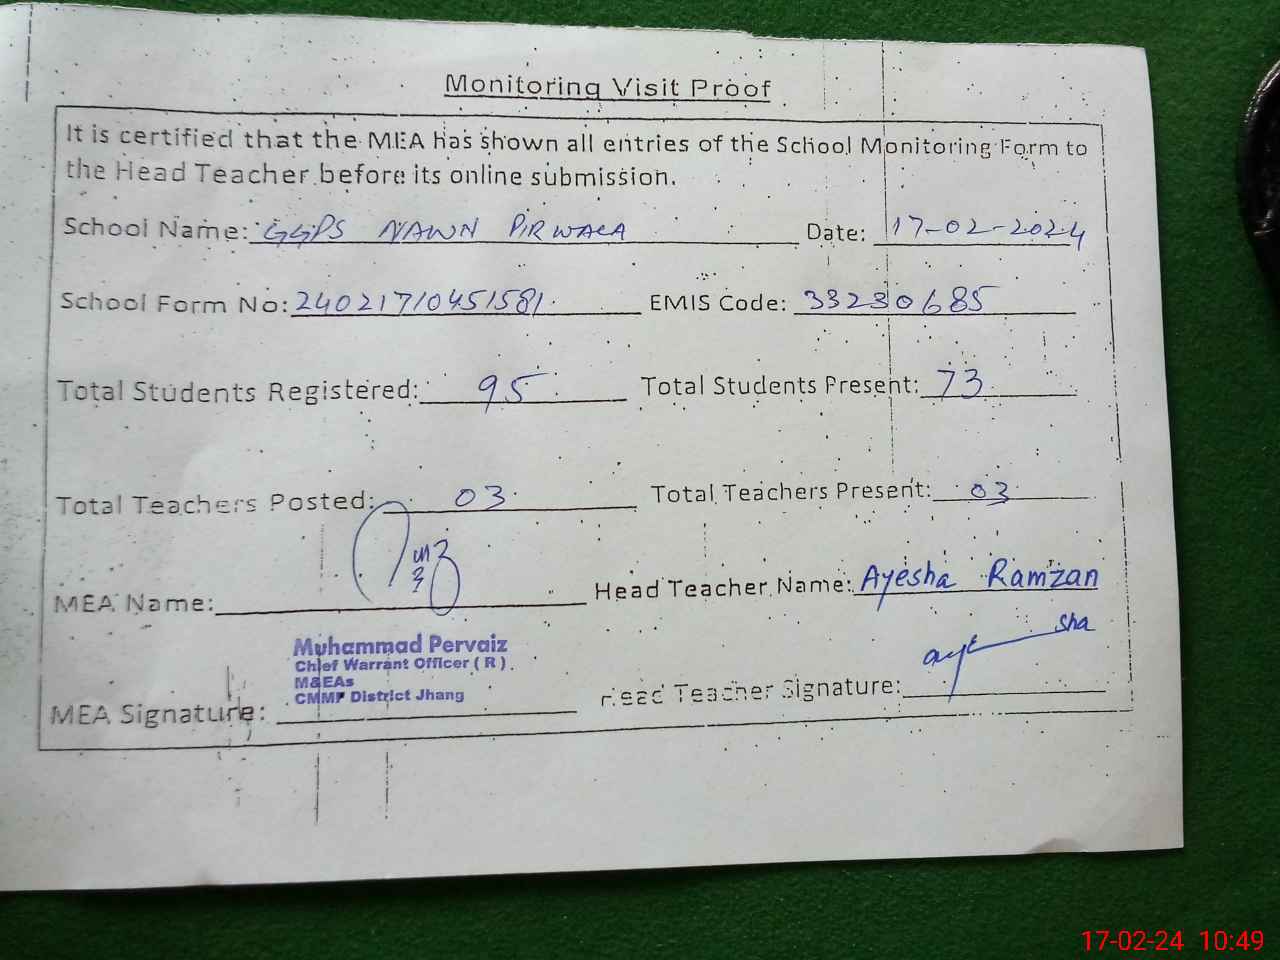 Monitoring Visit Proof
It is certified that the MEA has shown all entries of the School Monitoring Form to
the Head Teacher before its online submission.
School Name: GGPS NAWN PIRWALA Date: 17-02-2024
School Form No: 24021710451581 EMIS Code: 33230685
Total Students Registered: 95 Total Students Present: 73
Total Teachers Posted: 03 Total Teachers Present: 03
MEA Name: Head Teacher Name: Ayesha Ramzan
Muhammad Pervaiz
Chief Warrant Officer ( R )
M&EAs
CMMF District Jhang
MEA Signature: Head Teacher Signature: ayesha
17-02-24 10:49